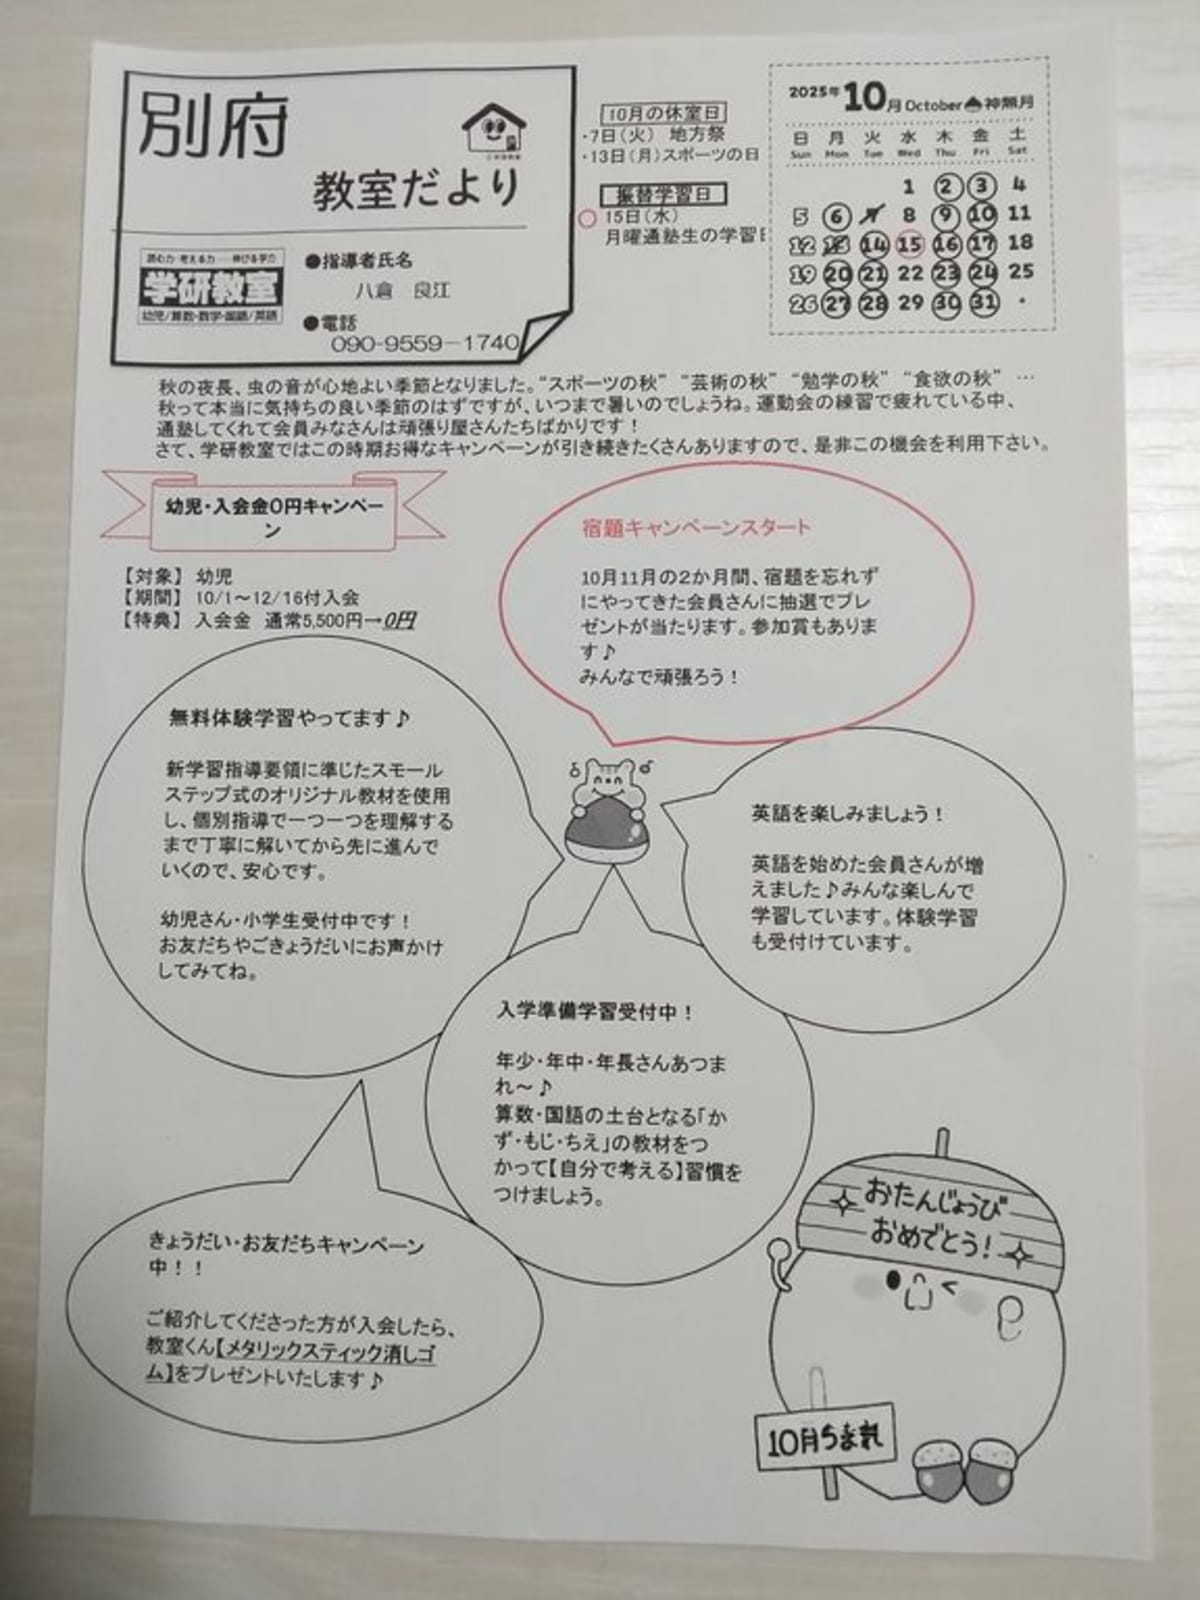 別府
教室だより
読む力・考える力
伸びる学力
学研教室
幼児/算数・数学・国語/英語
●指導者氏名
八倉 良江
●電話
090-9559-1740
10月の休室日
・7日(火) 地方祭
・13日(月)スポーツの日
振替学習日
○ 15日(水)
月曜通塾生の学習日
2025年 10月 October 神無月
日 月 火 水 木 金 土
Sun Mon Tue Wed Thu Fri Sat
1 2 3 4
5 6 7 8 9 10 11
12 13 14 15 16 17 18
19 20 21 22 23 24 25
26 27 28 29 30 31 ・
秋の夜長、虫の音が心地よい季節となりました。“スポーツの秋” “芸術の秋” “勉学の秋” “食欲の秋” …
秋って本当に気持ちの良い季節のはずですが、いつまで暑いのでしょうね。運動会の練習で疲れている中、
通塾してくれて会員みなさんは頑張り屋さんたちばかりです！
さて、学研教室ではこの時期お得なキャンペーンが引き続きたくさんありますので、是非この機会を利用下さい。
幼児・入会金0円キャンペー
ン
【対象】 幼児
【期間】 10/1～12/16付入会
【特典】 入会金 通常5,500円→0円
宿題キャンペーンスタート
10月11月の２か月間、宿題を忘れず
にやってきた会員さんに抽選でプレ
ゼントが当たります。参加賞もありま
す♪
みんなで頑張ろう！
無料体験学習やってます♪
新学習指導要領に準じたスモール
ステップ式のオリジナル教材を使用
し、個別指導で一つ一つを理解する
まで丁寧に解いてから先に進んで
いくので、安心です。
幼児さん・小学生受付中です！
お友だちやごきょうだいにお声かけ
してみてね。
英語を楽しみましょう！
英語を始めた会員さんが増
えました♪みんな楽しんで
学習しています。体験学習
も受付けています。
入学準備学習受付中！
年少・年中・年長さんあつま
れ～♪
算数・国語の土台となる「か
ず・もじ・ちえ」の教材をつ
かって【自分で考える】習慣を
つけましょう。
きょうだい・お友だちキャンペーン
中！！
ご紹介してくださった方が入会したら、
教室くん【メタリックスティック消しゴ
ム】をプレゼントいたします♪
おたんじょうび
おめでとう！
10月うまれ